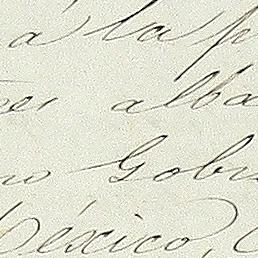 á la p
alba
no Gobi
México,